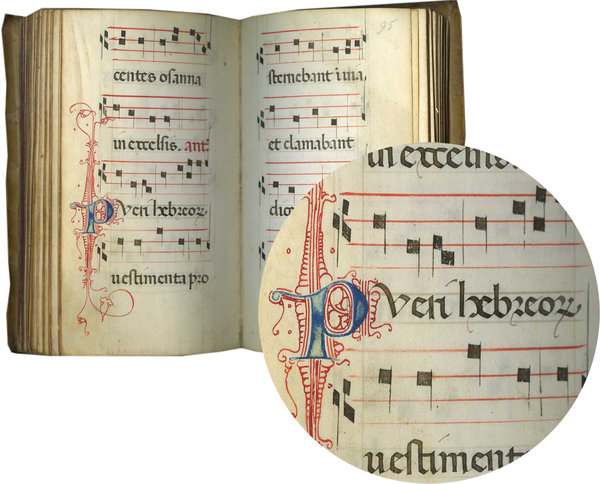 centes osanna
in excelsis. ant
Pueri hebreoꝝ
uestimenta pro
95
sternebant in uia
et clamabant
in excelsis.
Pueri hebreoꝝ
uestimen